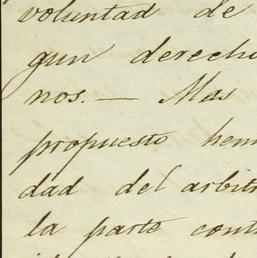 voluntad de
gun derecho
nos. — Mas
propuesto hem
dad del arbitr
la parte cont